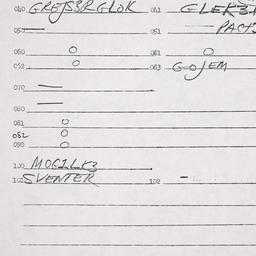 040 GREJS3RGLOK 041 GLEK3
050 — 051 PACT3
060 O 061 O
052 O 063 GOJEM
070 —
080 —
081 O
082 O
090 O
100 MOG1LK3
101 SVENTER 102 -